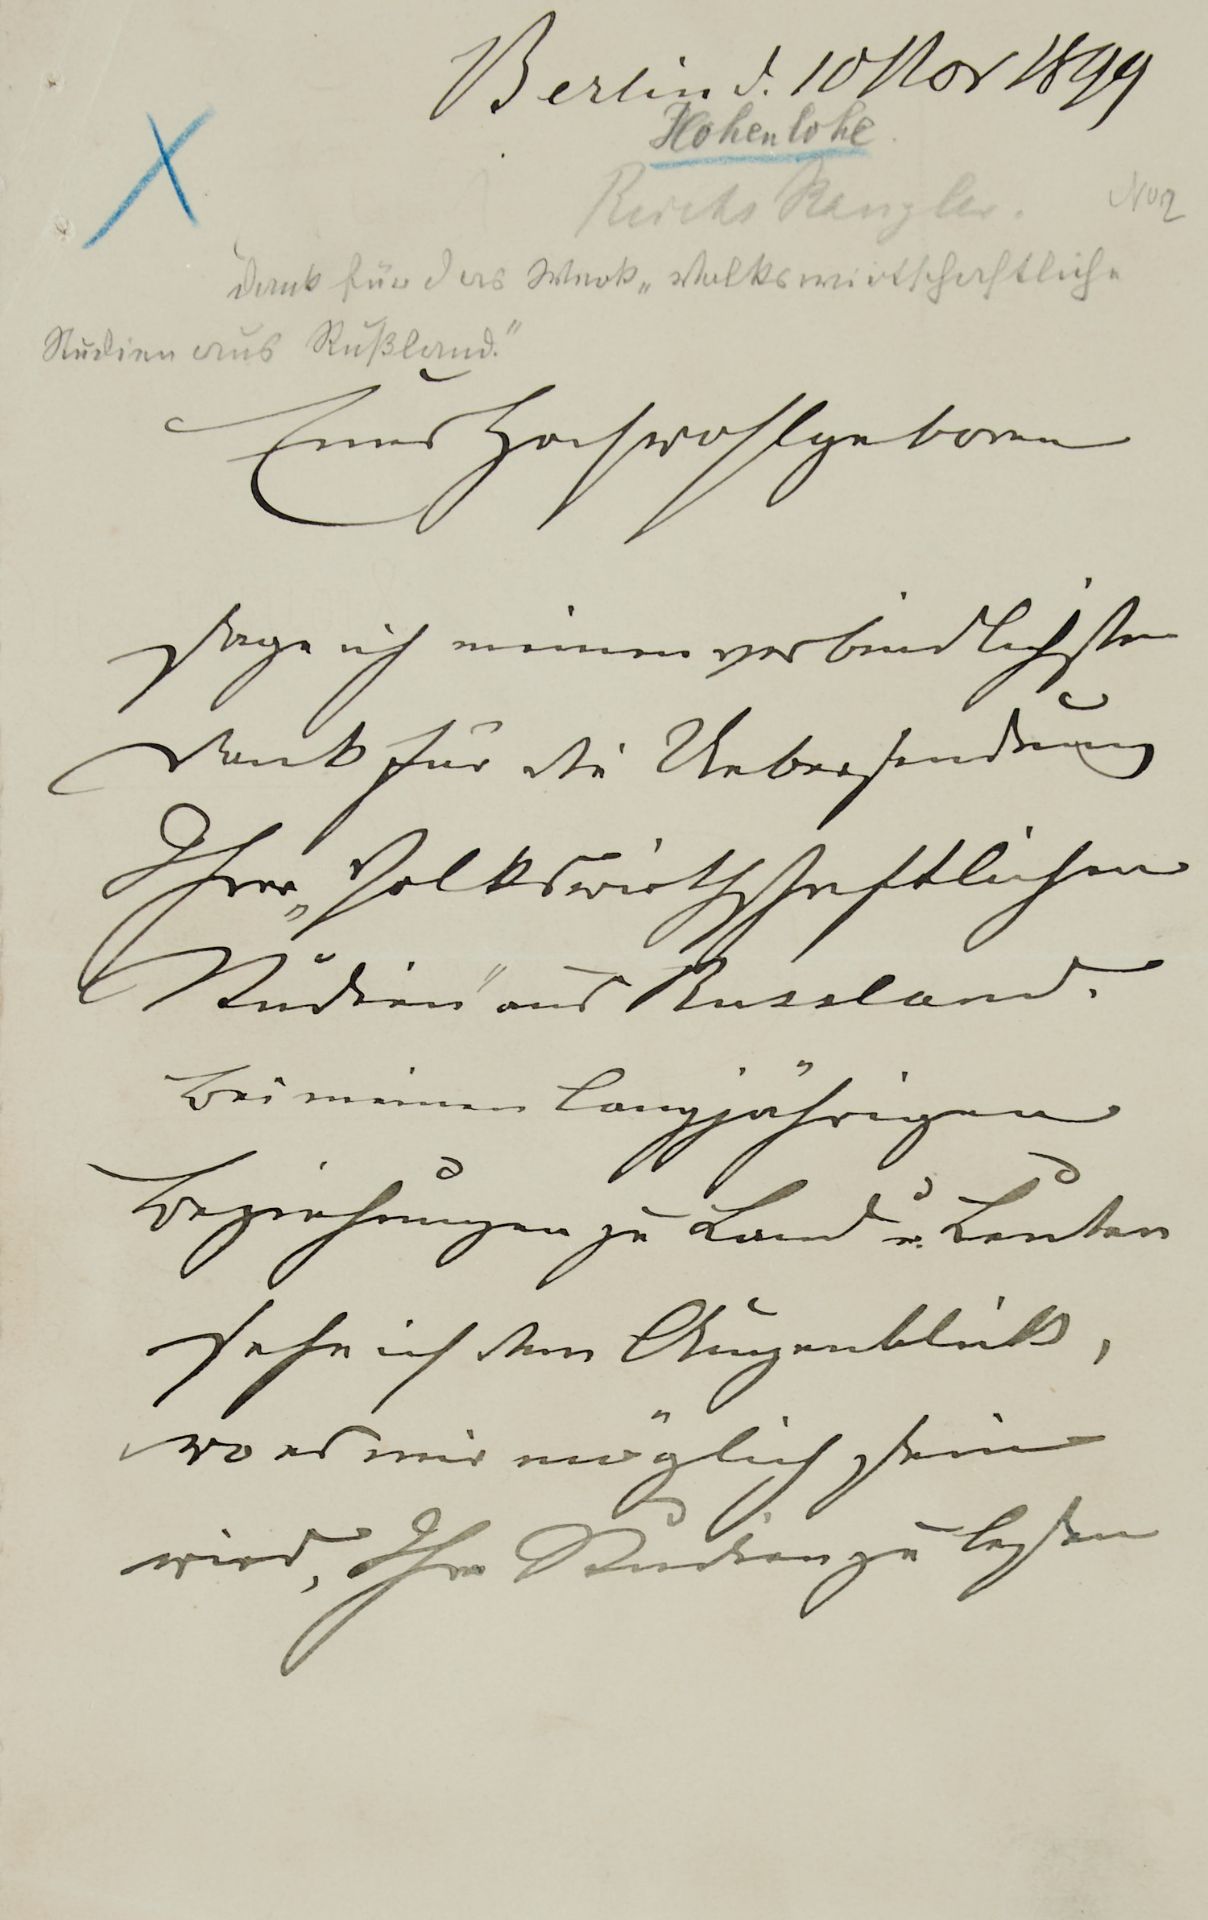 Berlin d. 10 Nov 1899
Hohenlohe
Reichs Kanzler.
Dank für das Werk „Volkswirtschaftliche
Studien aus Rußland."
Euer Hochwohlgeboren
sage ich meinen verbindlichsten
Dank für die Uebersendung
Ihrer „Volkswirthschaftlichen
Studien" aus Russland.
Bei meinen langjährigen
Beziehungen zu Land u. Leuten
sehe ich dem Augenblick,
wo es mir möglich sein
wird, Ihre Studien zu lesen